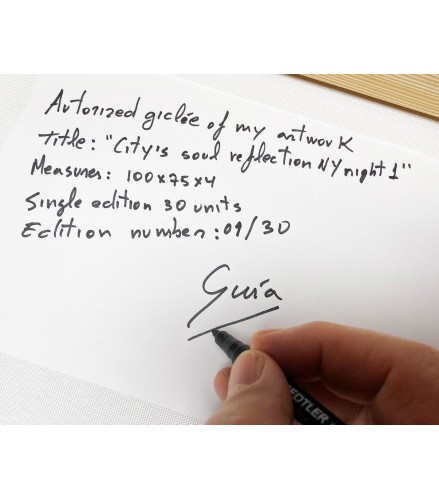 Autorized giclée of my artwork
title: "City's soul reflection NY night 1"
Measures: 100x75x4
Single edition 30 units
Edition number: 01/30
Guía
STAEDTLER